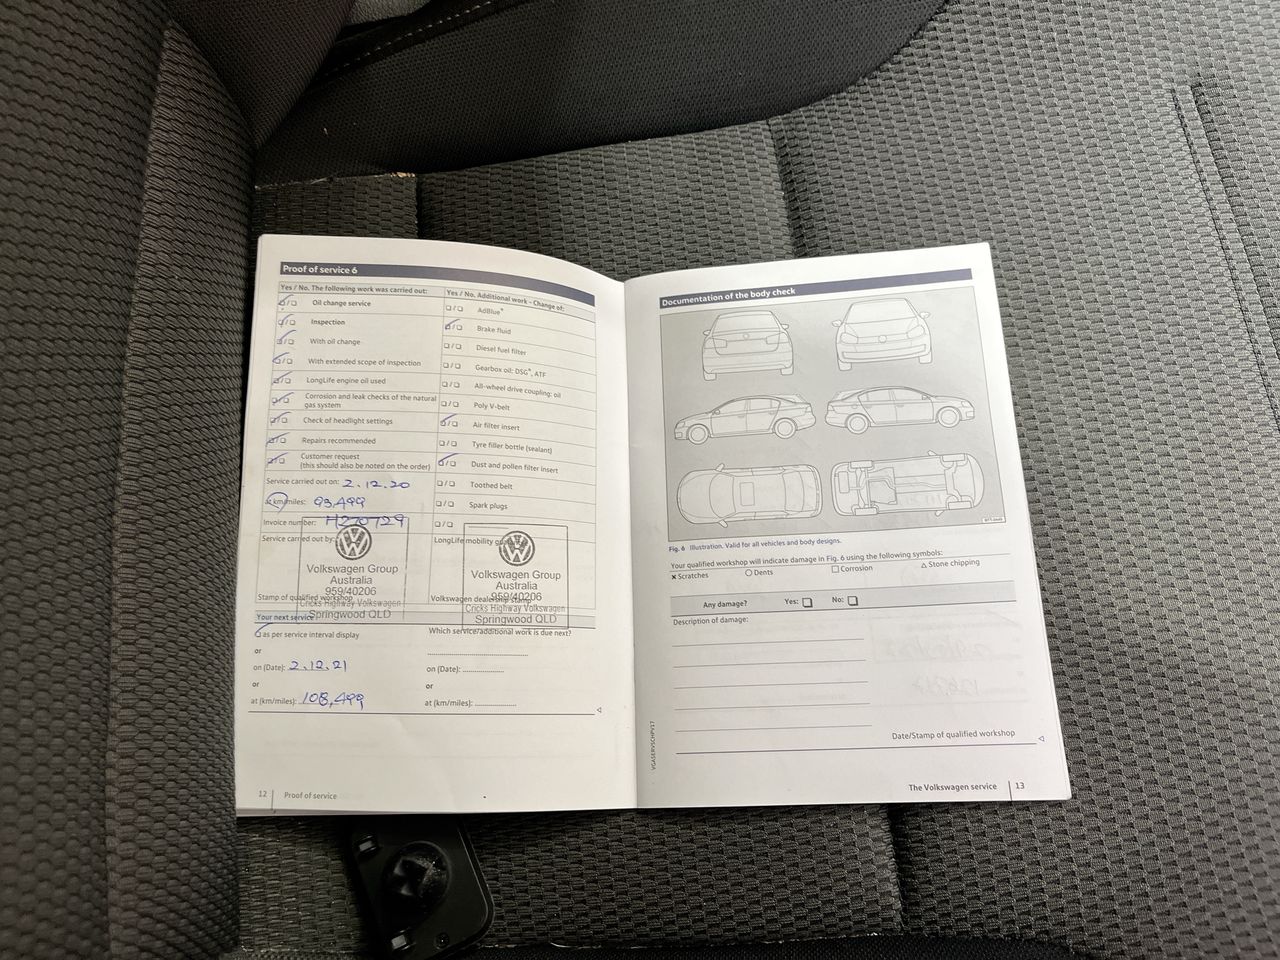 Proof of service 6
Yes / No. The following work was carried out:
Oil change service
Inspection
With oil change
With extended scope of inspection
LongLife engine oil used
Corrosion and leak checks of the natural
gas system
Check of headlight settings
Repairs recommended
Customer request
(this should also be noted on the order)
Service carried out on: 2.12.20
at km/miles: 93,499
Invoice number: H270729
Service carried out by:
Volkswagen Group
Australia
959/40206
Cricks Highway Volkswagen
Springwood QLD
Stamp of qualified workshop
Yes / No. Additional work - Change of:
AdBlue®
Brake fluid
Diesel fuel filter
Gearbox oil: DSG®, ATF
All-wheel drive coupling: oil
Poly V-belt
Air filter insert
Tyre filler bottle (sealant)
Dust and pollen filter insert
Toothed belt
Spark plugs
LongLife mobility
Volkswagen Group
Australia
959/40206
Cricks Highway Volkswagen
Springwood QLD
Volkswagen dealership stamp
Your next service
as per service interval display
or
on (Date): 2.12.21
or
at (km/miles): 108,499
Which service/additional work is due next?
on (Date):
or
at (km/miles):
12 Proof of service
Documentation of the body check
Fig. 6 Illustration. Valid for all vehicles and body designs.
Your qualified workshop will indicate damage in Fig. 6 using the following symbols:
× Scratches ○ Dents □ Corrosion △ Stone chipping
Any damage? Yes: □ No: □
Description of damage:
Date/Stamp of qualified workshop
The Volkswagen service 13